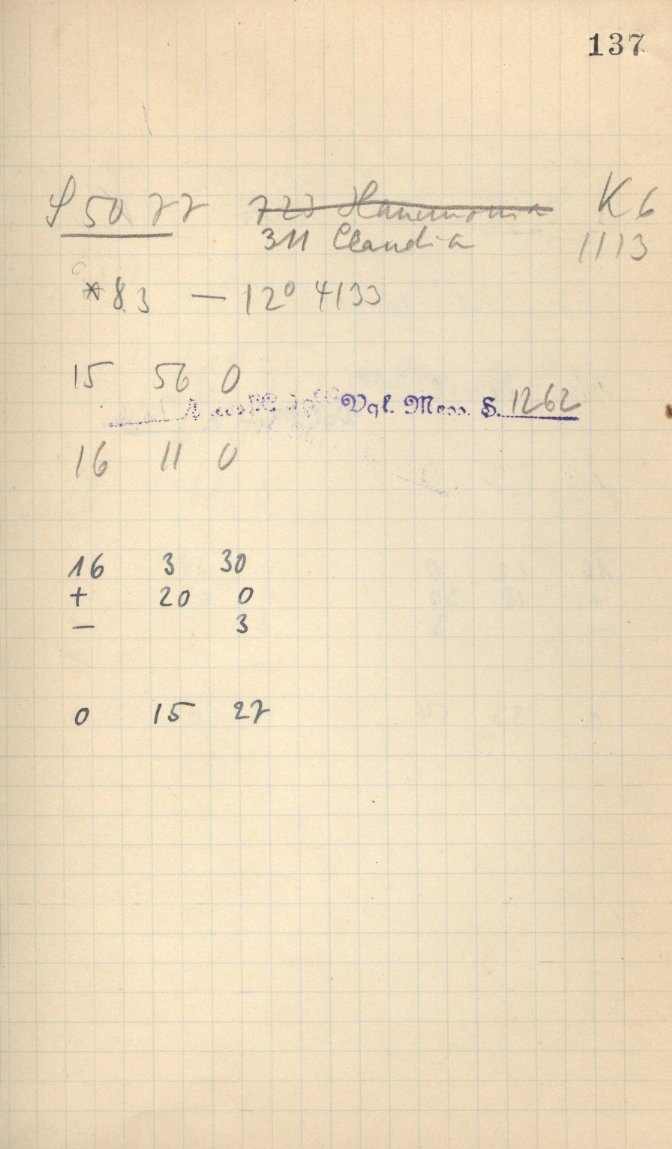 137
S 50 77 723 Hammonia K 6
311 Claudia 1113
*83 — 12° 4133
15 56 0
Vgl. Mess. S. 1262
16 11 0
16 3 30
+ 20 0
— 3
0 15 27